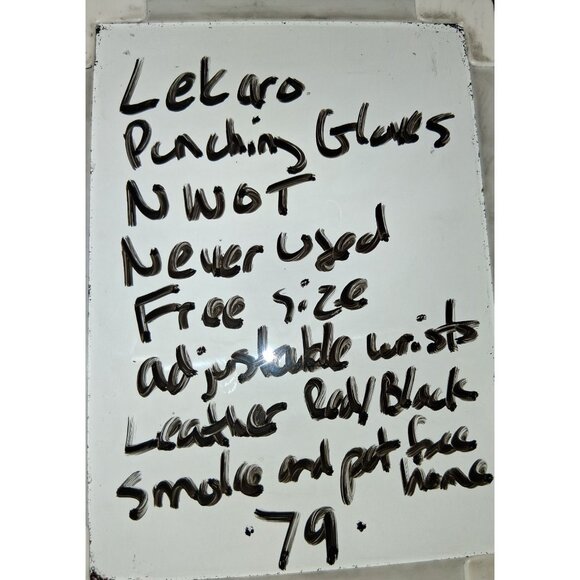 Lekaro
Punching Gloves
NWOT
Never used
Free size
adjustable wrists
Leather Red/Black
Smoke and pet free
home
·79·